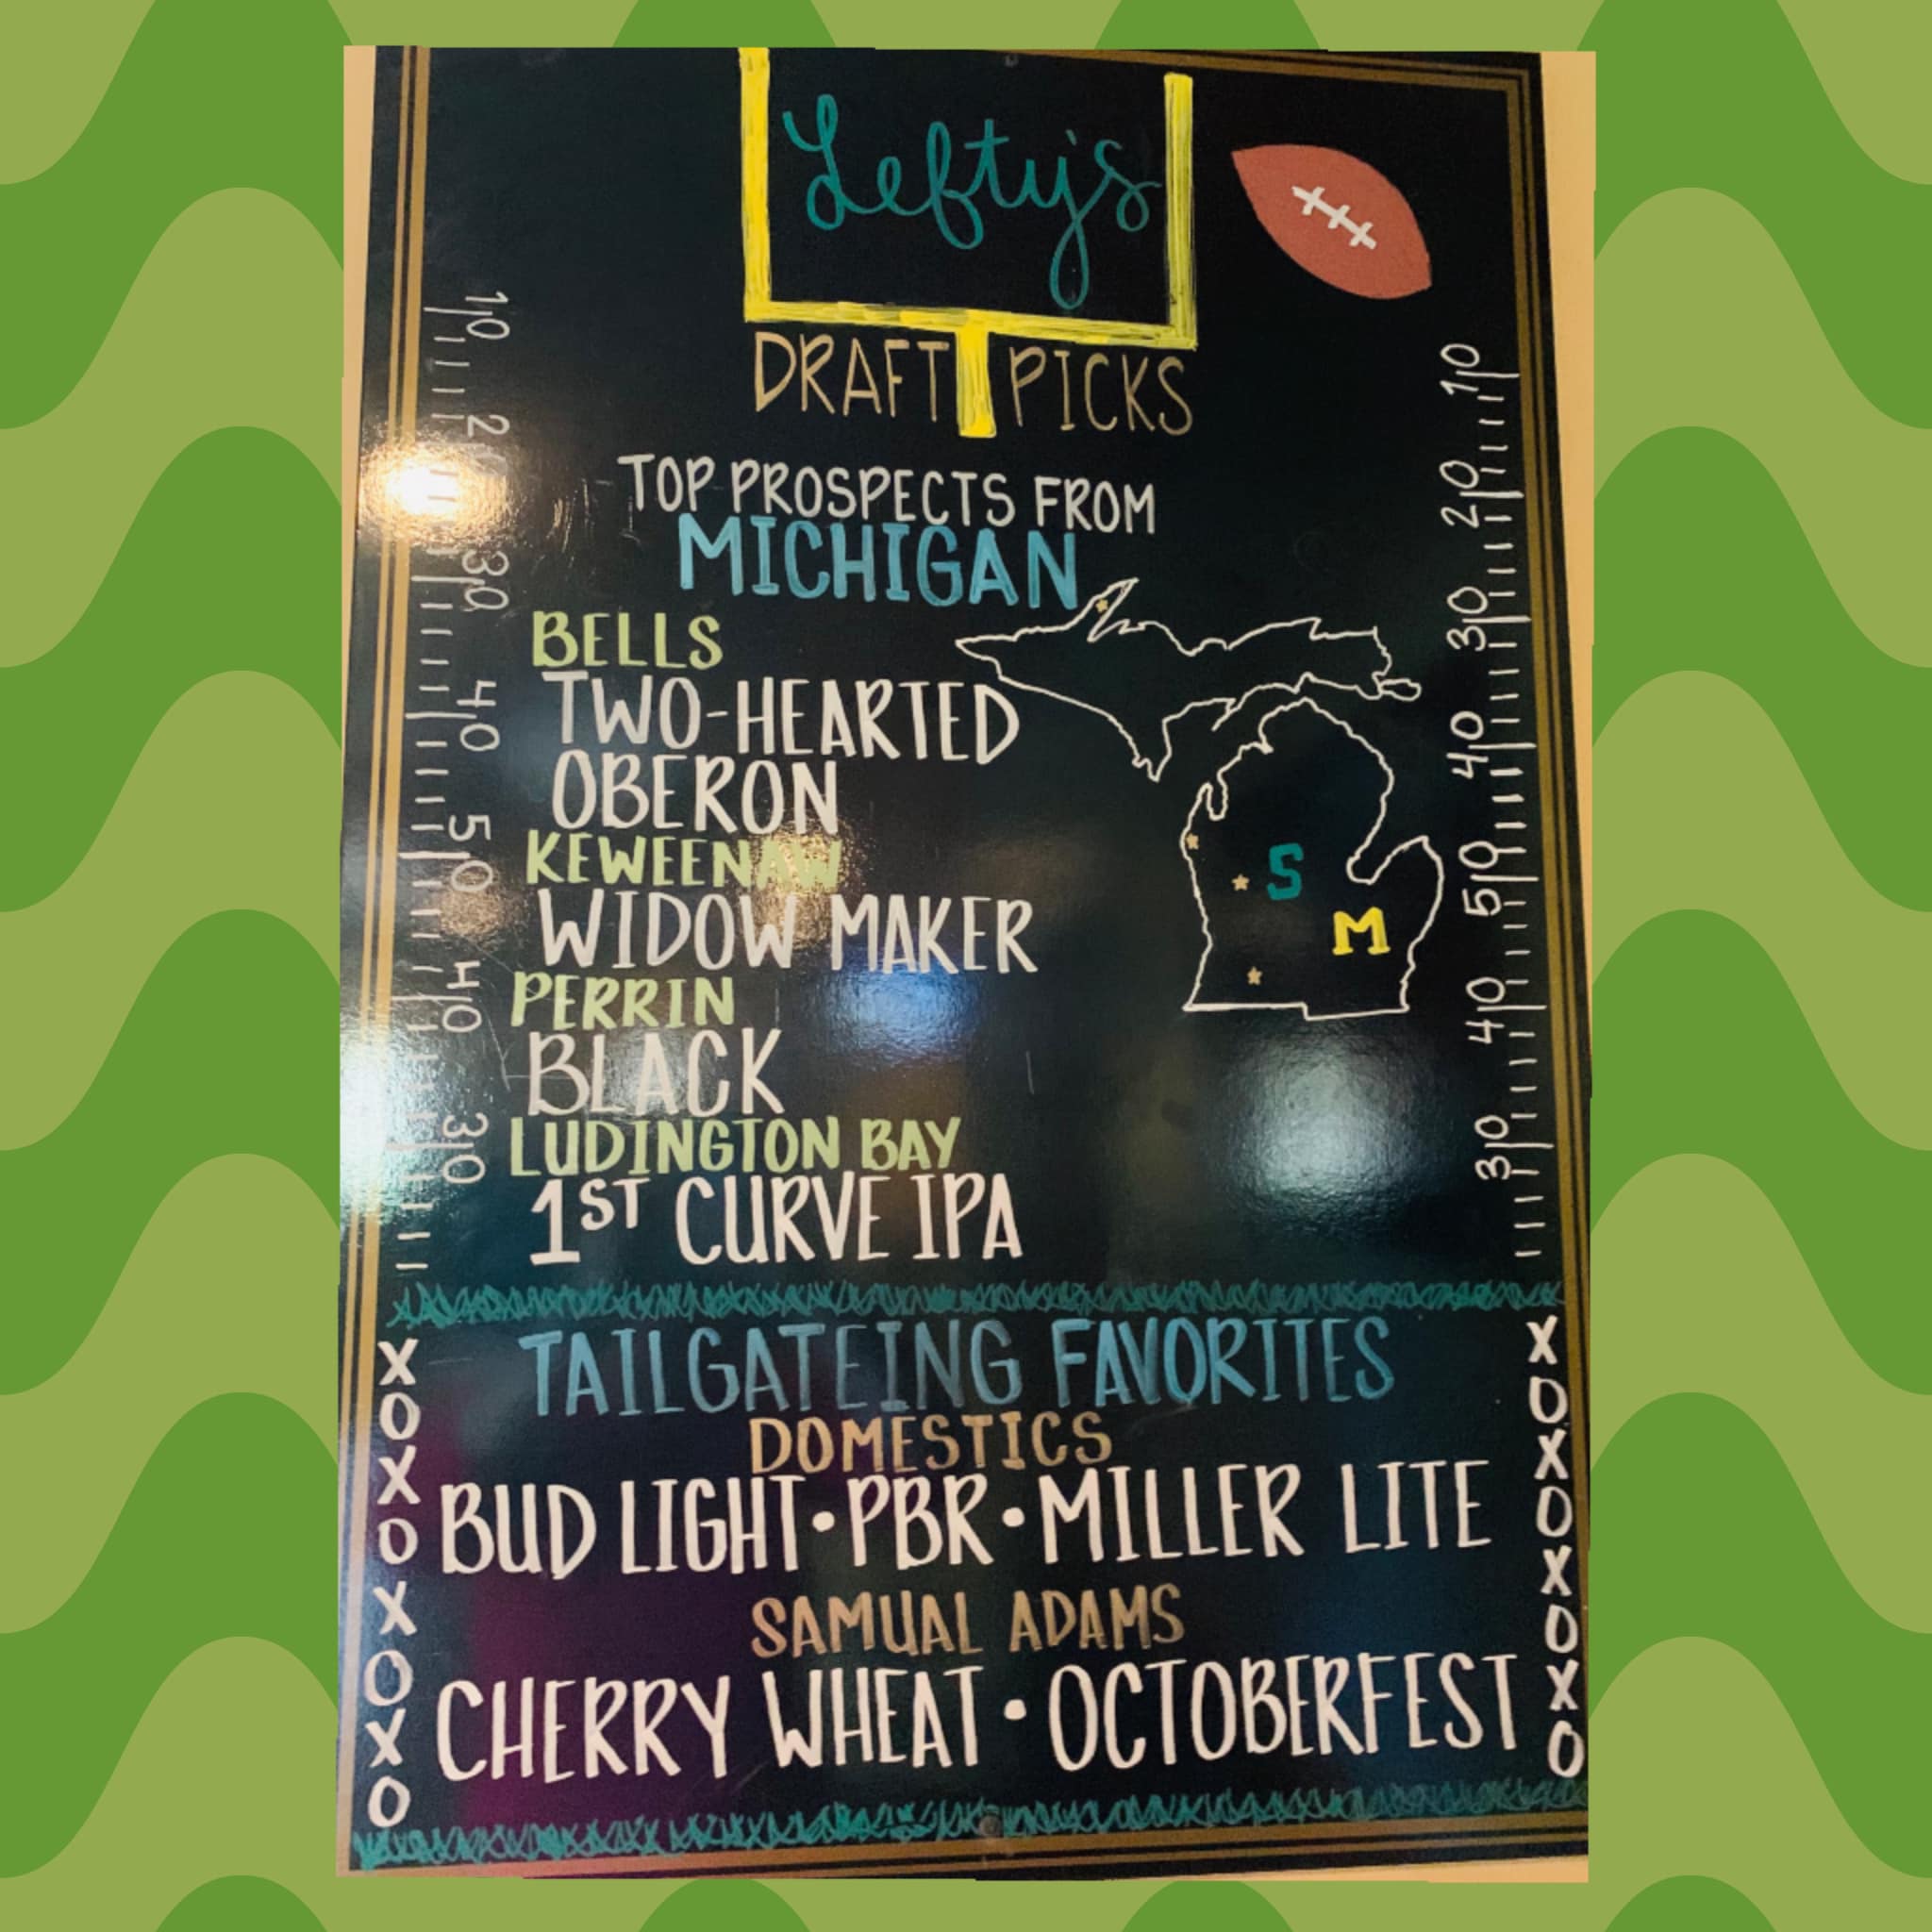 Lefty's
DRAFT PICKS
TOP PROSPECTS FROM
MICHIGAN
BELLS
TWO-HEARTED
OBERON
KEWEENAW
WIDOW MAKER
PERRIN
BLACK
LUDINGTON BAY
1ST CURVE IPA
S
M
10
30
40
50
40
30
10
20
30
40
50
40
30
TAILGATEING FAVORITES
DOMESTICS
BUD LIGHT • PBR • MILLER LITE
SAMUAL ADAMS
CHERRY WHEAT • OCTOBERFEST
X
O
X
O
X
O
X
O
X
O
X
O
X
O
X
O